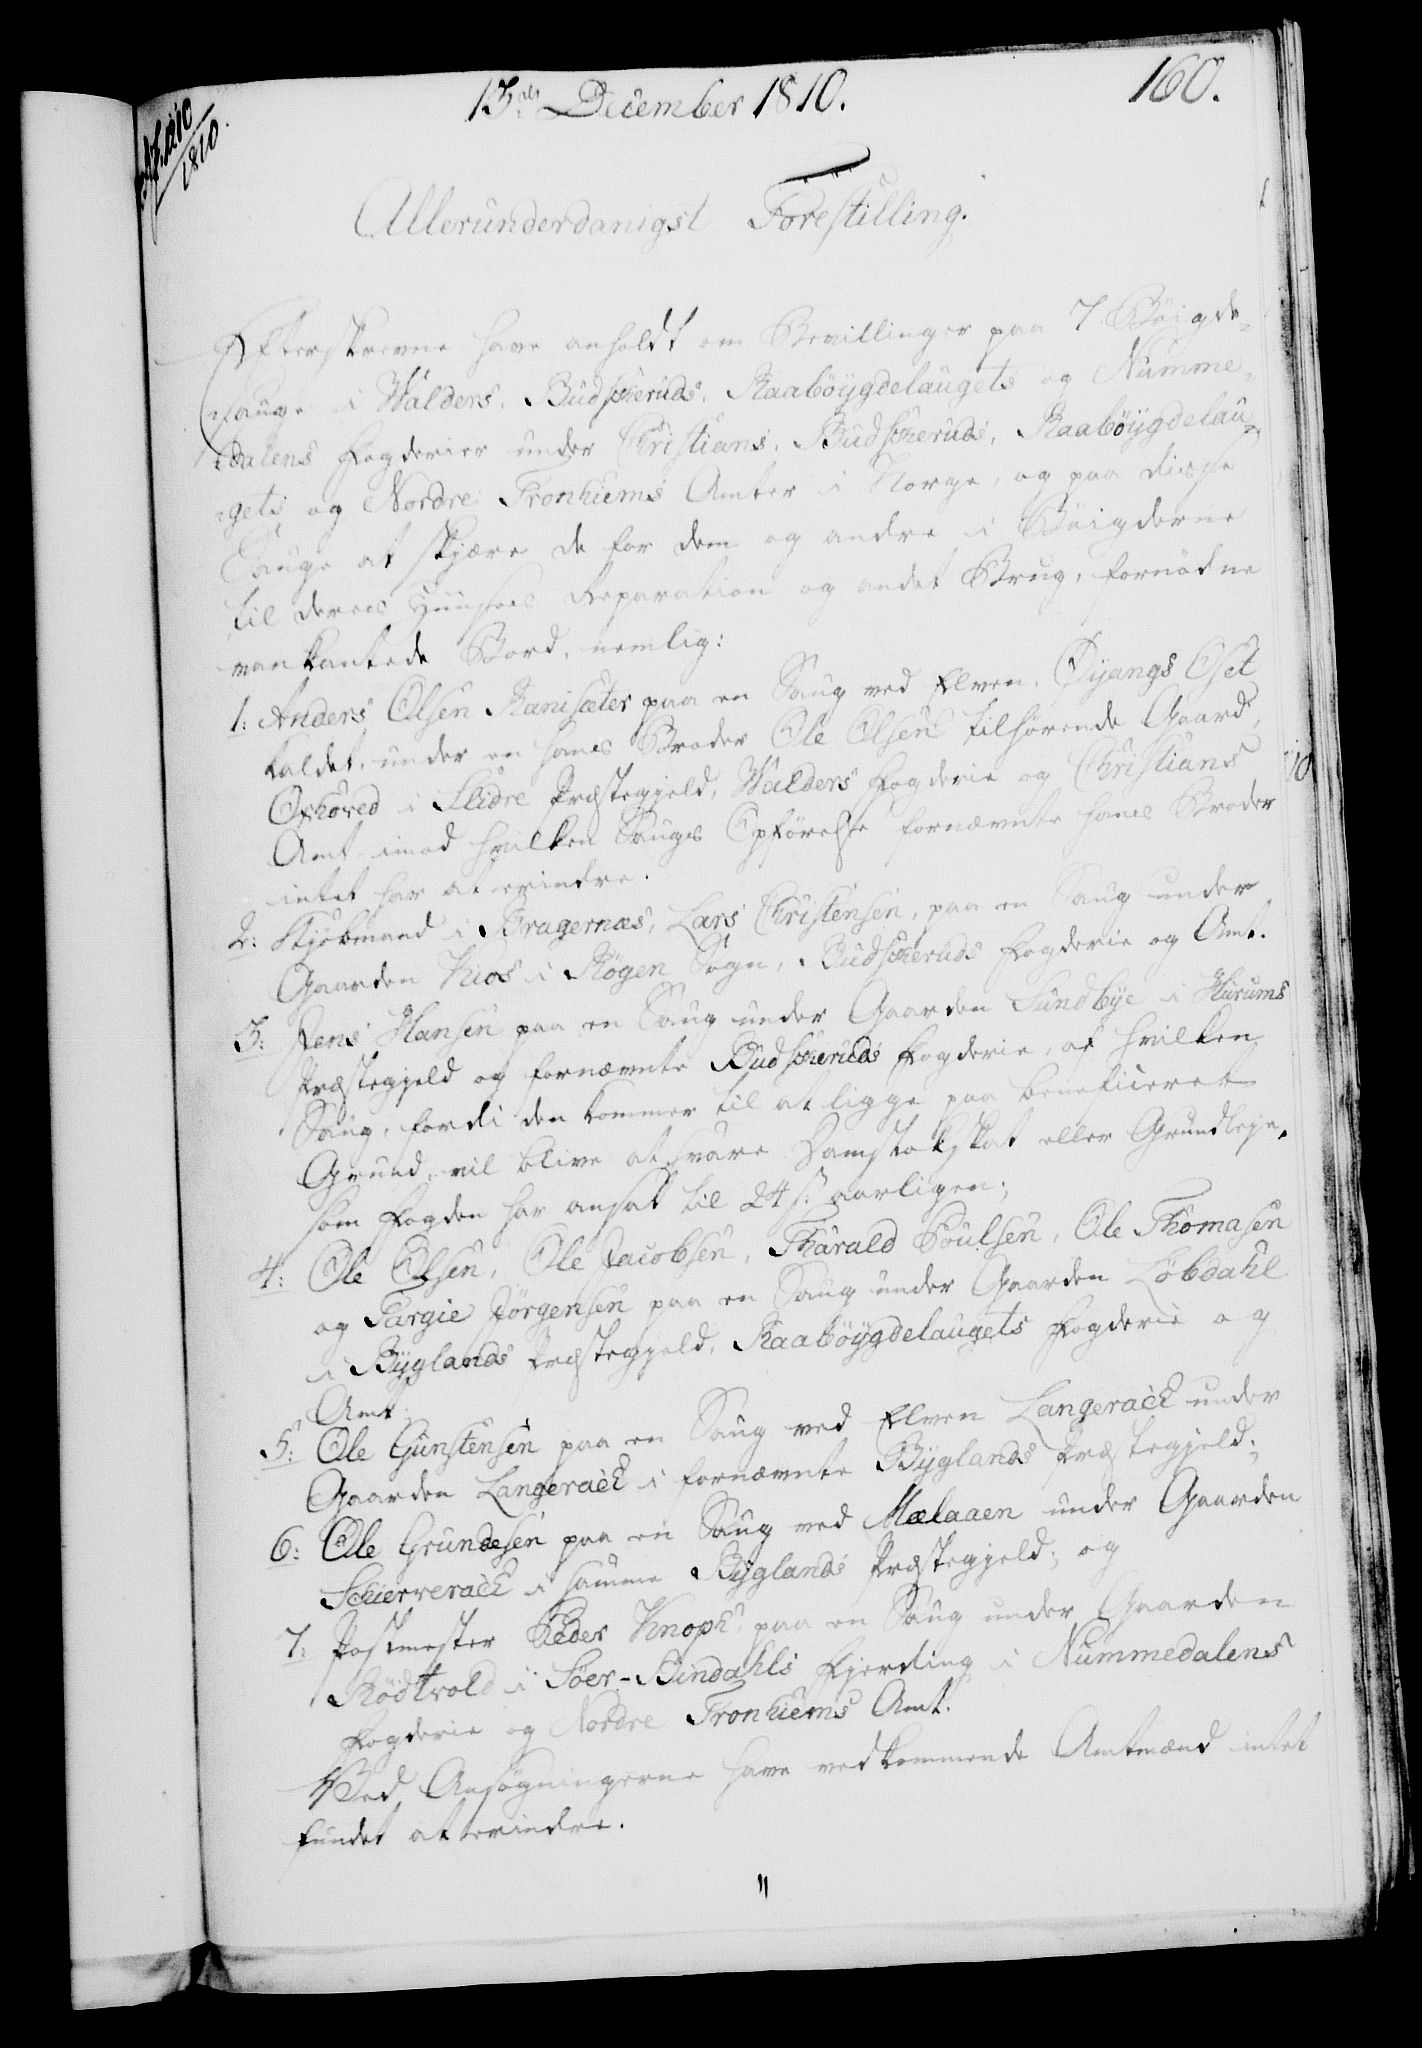 13de December 1810.
160.
1810.
Allerunderdanigst Forestilling.
Efterskrevne have anholdt om Bevillinger paa 7 Böigde-
sauge i Walders, Budscheruds, Raaböygdelaugets og Numme-
dalens Fogderier under Christians, Budscheruds, Raaböygdelau-
gets og Nordre Tronhiems Amter i Norge, og paa disse
Sauge at skjære de for dem og andre i Böigderne
til deres Huusees Reparation og andet Brug, fornödne
vankantede Bord, nemlig:
1: Anders Olsen Ranisæter paa en Saug ved Elven, Öyangs Oset
kaldet, under en hans Broder Ole Olsen tilhörende Gaard,
Oxhöved i Slidre Præstegjeld, Walders Fogderie og Christians
Amt, imod hvilken Saugs Opförelse fornævnte hans Broder
intet har at erindre.
2: Kjöbmand i Bragernæs, Lars Christensen, paa en Saug under
Gaarden Kios i Rögen Sogn, Budscheruds Fogderie og Amt.
3: Jens Hansen paa en Saug under Gaarden Sundbye i Hurums
Præstegjeld og fornævnte Budscheruds Fogderie, af hvilken
Saug, fordi den kommer til at ligge paa beneficeret
Grund, vil blive at svare Damstokskat eller Grundleje,
som Fogden har ansat til 24 s. aarligen;
4: Ole Olsen, Ole Jacobsen, Tharald Poulsen, Ole Thomasen
og Targie Jörgensen paa en Saug under Gaarden Löbdahl
i Byglands Præstegjeld, Raaböygdelaugets Fogderie og
Amt;
5: Ole Gunstensen paa en Saug ved Elven Langerack under
Gaarden Langerack i fornævnte Byglands Præstegjeld;
6: Ole Grundesen paa en Saug ved Mælaaen under Gaarden
Schierverack i samme Byglands Præstegjeld; og
7: Postmester Peder Knoph paa en Saug under Gaarden
Rödtvold i Söer-Bindahls Fjerding i Nummedalens
Fogderie og Nordre Tronhiems Amt.
Ved Ansögningerne have vedkommende Amtmænd intet
fundet at erindre.